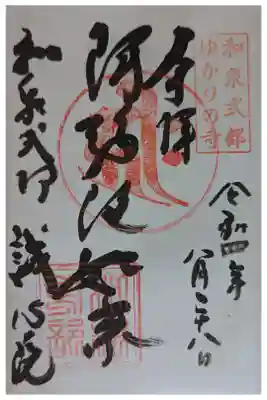 和泉式部
ゆかりの寺
奉拝
令和四年
八月二十八日
阿弥陀如来
和泉式部 誠心院